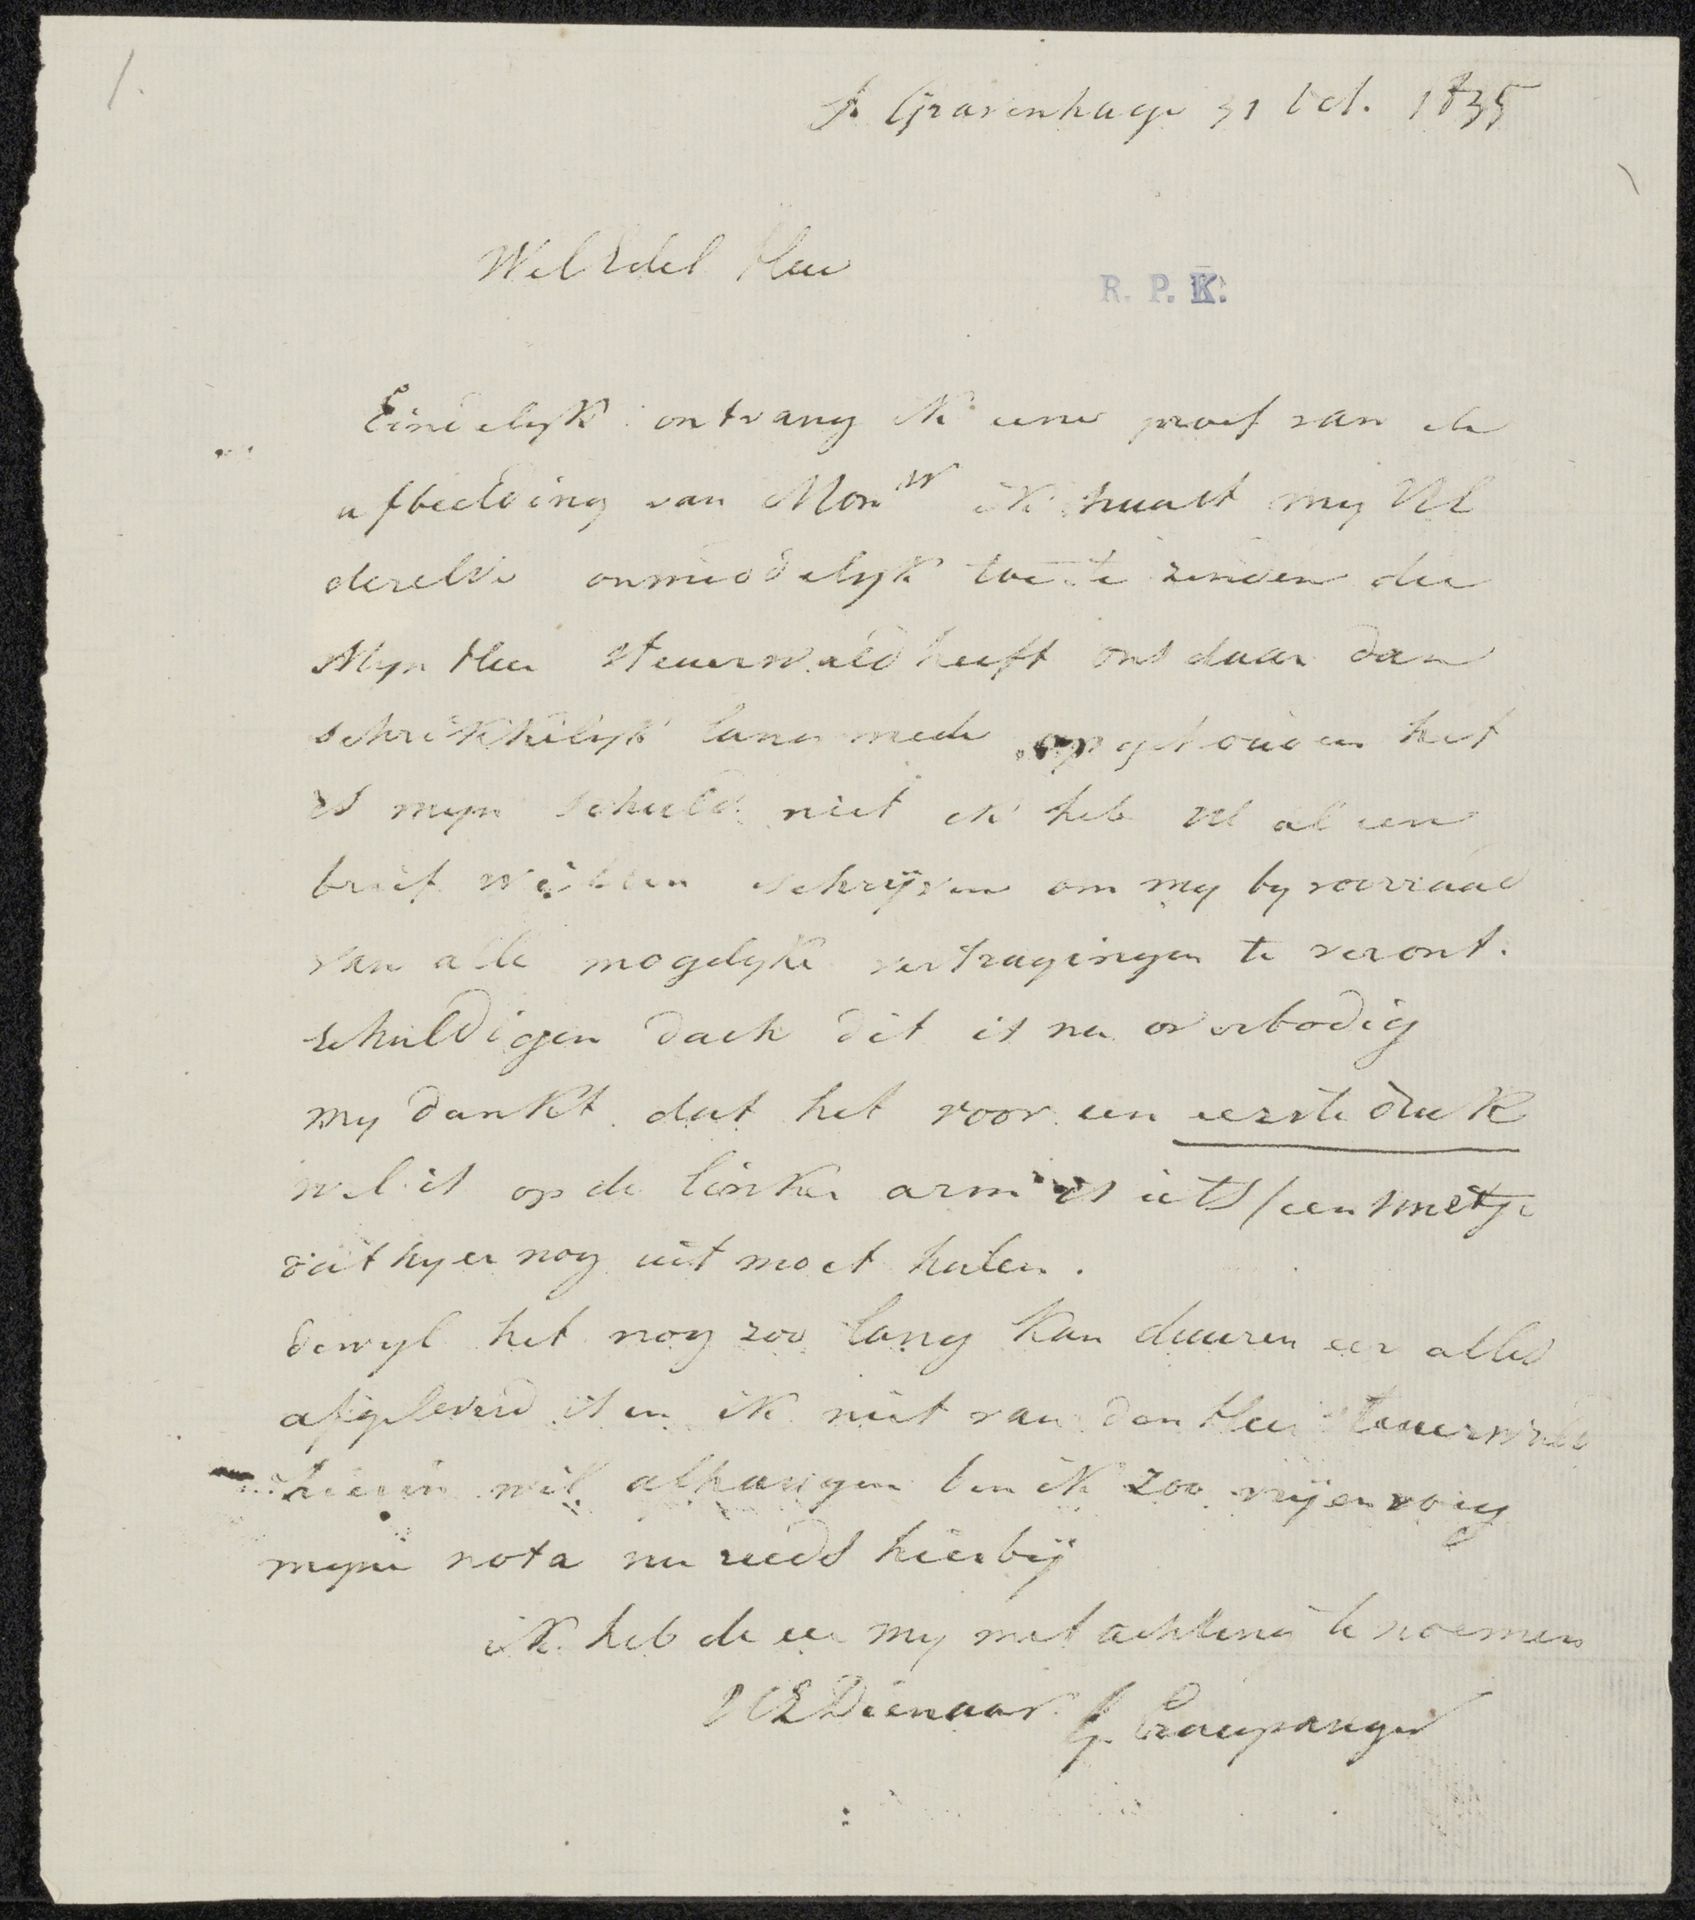 1.
s' Gravenhage 31 Oct. 1835
Wel Edel Heer
R. P. K.
Eindelyk ontvang ik eene proef van de
afbeelding van Monr ik haast my UE
dezelve onmiddelyk toe te zenden die
Mynheer Steuerwald heeft ons daar dan
schrikkelyk lang mede opgehouden het
is myn schuld niet ik heb UE al een
brief willen schrijven om my by voorraad
van alle mogelyke vertragingen te veront.
schuldigen doch dit is nu overbodig
my dunkt dat het voor een eerste druk
wel is op de linker arm is iets / een smetje
dat hy er nog uit moet halen.
dewyl het nog zoo lang kan duuren eer alles
afgeleverd is en ik niet van den Heer Steuerwald
hierin wil afhangen ben ik zoo vrij en voeg
myne nota nu reeds hierbij
ik heb de eer my met achting te noemen
UE Dienaar J. Craeyvanger